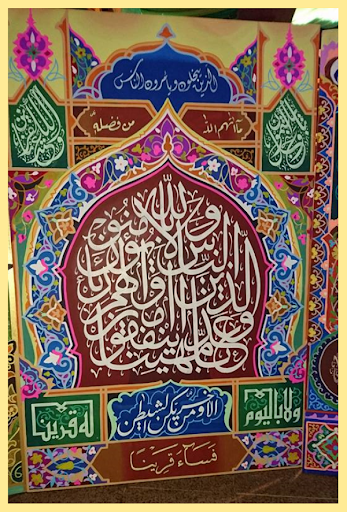 الذين يبخلون ويأمرون الناس
بالبخل ويكتمون
ما آتاهم الله
من فضله
وأعتدنا للكافرين
عذابا مهينا والذين ينفقون أموالهم رئاء الناس ولا يؤمنون بالله
ولا باليوم
الآخر ومن يكن الشيطان
له قرينا
فساء قرينا